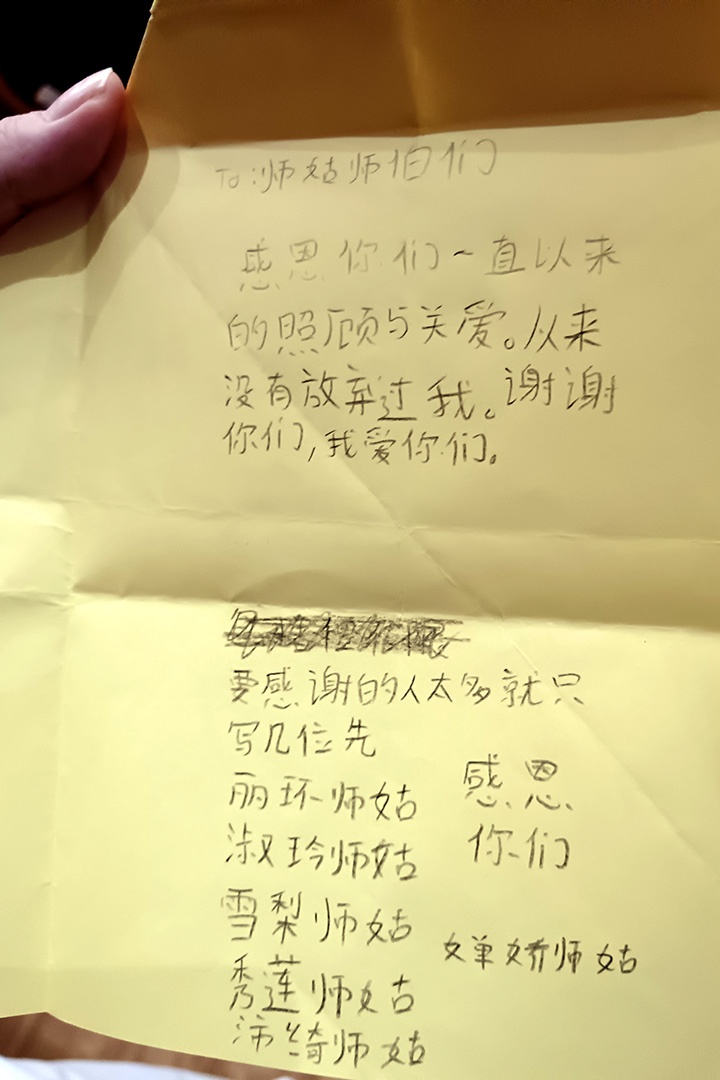 To:师姑师伯们
感恩你们一直以来
的照顾与关爱。从来
没有放弃过我。谢谢
你们,我爱你们。
要感谢的人太多就只
写几位先
丽环师姑
淑玲师姑
雪梨师姑
秀莲师姑
沛绮师姑
感恩
你们
婵娇师姑